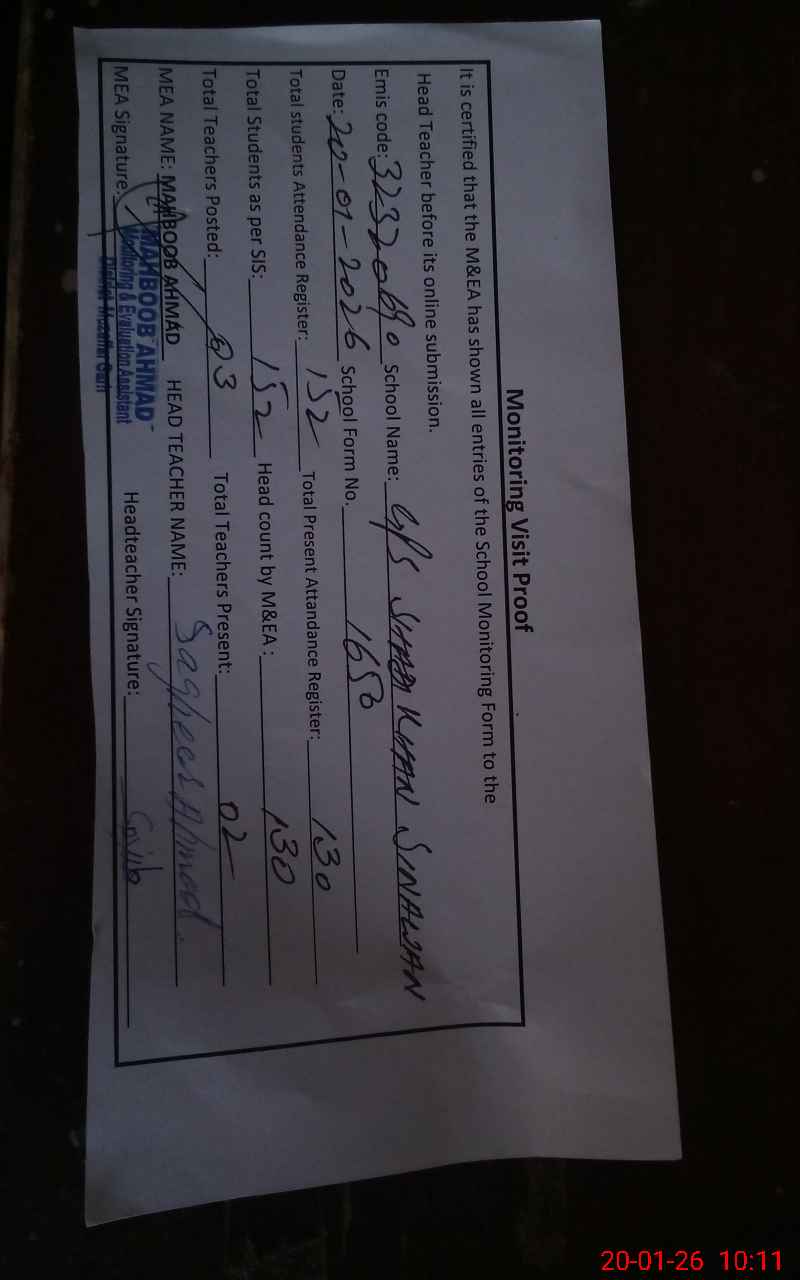 Monitoring Visit Proof
It is certified that the M&EA has shown all entries of the School Monitoring Form to the
Head Teacher before its online submission.
Emis code: 32320690 School Name: GPS KHAN SINAWAN
Date: 20-01-2026 School Form No. 1650
Total students Attendance Register: 152 Total Present Attandance Register: 130
Total Students as per SIS: 152 Head count by M&EA : 130
Total Teachers Posted: 03 Total Teachers Present: 02
MEA NAME: MAHBOOB AHMAD HEAD TEACHER NAME: Sagheer Ahmad.
MEA Signature: Headteacher Signature:
MAHBOOB AHMAD
Monitoring & Evaluation Assistant
District Muzaffar Garh
20-01-26 10:11